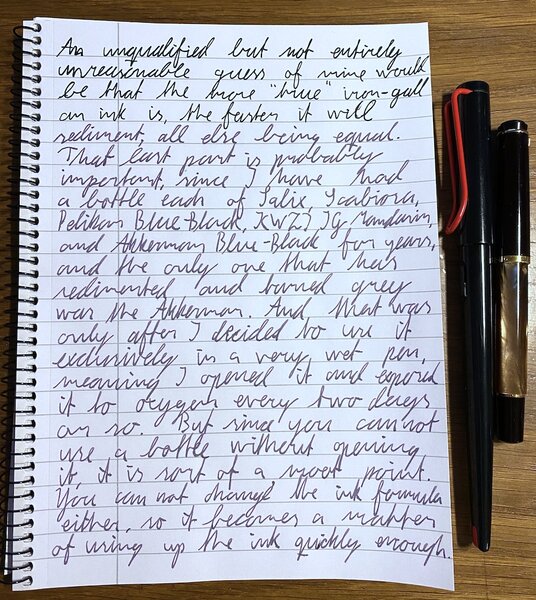 An unqualified but not entirely
unreasonable guess of mine would
be that the more "true" iron-gall
an ink is, the faster it will
sediment, all else being equal.
That last part is probably
important, since I have had
a bottle each of Salix, Scabiosa,
Pelikan Blue-Black, KWZI IG Mandarin,
and Akkerman Blue-Black for years,
and the only one that has
sedimented and turned grey
was the Akkerman. And that was
only after I decided to use it
exclusively in a very wet pen,
meaning I opened it and exposed
it to oxygen every two days
or so. But since you can not
use a bottle without opening
it, it is sort of a moot point.
You can not change the ink formula
either, so it becomes a matter
of using up the ink quickly enough.